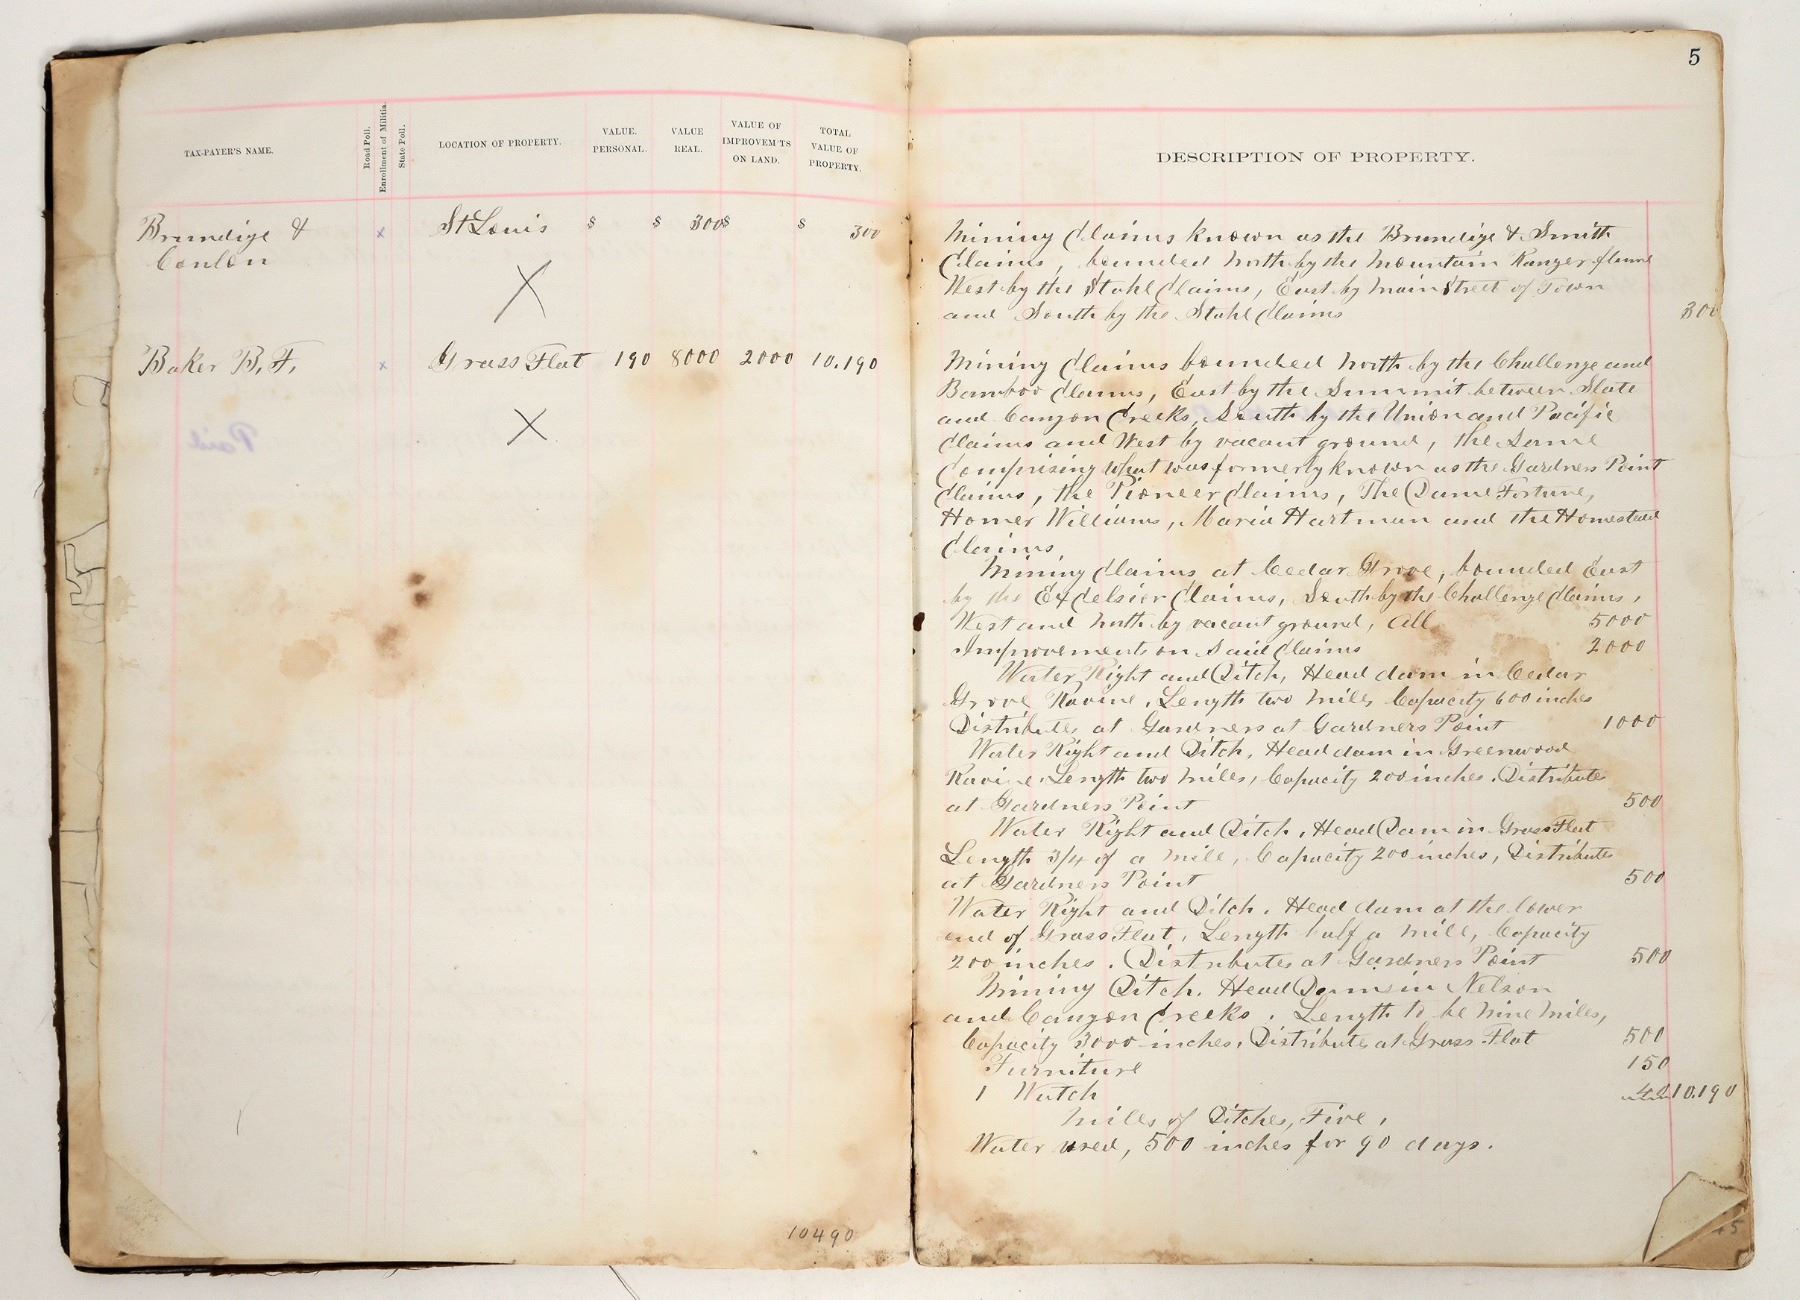 TAX-PAYER'S NAME.
Road Poll.
Enrollment of Militia.
State Poll.
LOCATION OF PROPERTY.
VALUE. PERSONAL.
VALUE REAL.
VALUE OF IMPROVEM'TS ON LAND.
TOTAL VALUE OF PROPERTY.
Brundige & x St Louis $ $ 300 $ $ 300
Conlon
X
Baker B. F. x Grass Flat 190 8000 2000 10.190
X
Paid
10490
5
DESCRIPTION OF PROPERTY.
Mining Claims known as the Brundige & Smith
Claims, bounded North by the Mountain Ranger Claims
West by the Stahl Claims, East by Main Street of Town
and South by the Stahl Claims 300
Mining Claims bounded North by the Challenge and
Bamboo Claims, East by the Summit between Slate
and Canyon Creeks, South by the Union and Pacific
Claims and West by vacant ground, the Same
Comprising what was formerly known as the Gardners Point
Claims, the Pioneer Claims, The Dame Fortune,
Homer Williams, Maria Hartman and the Homestead
Claims,
Mining Claims at Cedar Grove, bounded East
by the Excelsior Claims, South by the Challenge Claims,
West and North by vacant ground, All 5000
Improvements on Said Claims 2000
Water Right and Ditch, Head dam in Cedar
Grove Ravine, Length two miles, Capacity 600 inches
Distributes at Gardners at Gardners Point 1000
Water Right and Ditch, Head dam in Greenwood
Ravine, Length two Miles, Capacity 200 inches. Distributes
at Gardners Point 500
Water Right and Ditch, Head Dam in Grass Flat
Length 3/4 of a Mile, Capacity 200 inches, Distributes
at Gardners Point 500
Water Right and Ditch. Head dam at the lower
end of Grass Flat, Length half a Mile, Capacity
200 inches. Distributes at Gardners Point 500
Mining Ditch. Head Dams in Nelson
and Canyon Creeks. Length to be Nine Miles,
Capacity 3000 inches. Distributes at Grass Flat 500
Furniture 150
1 Watch 40 10.190
Miles of Ditches, Five,
Water used, 500 inches for 90 days.